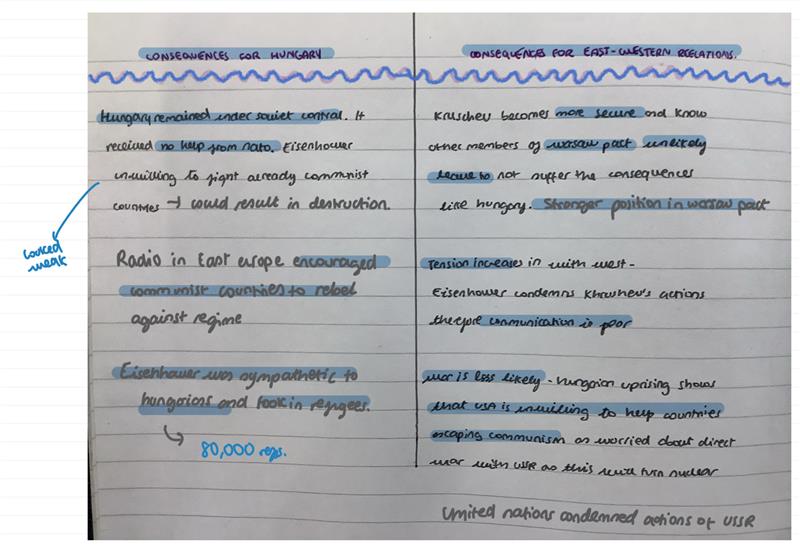 CONSEQUENCES FOR HUNGARY
Hungary remained under soviet control. It
received no help from nato. Eisenhower
unwilling to fight already communist
countries → could result in destruction.
looked
weak
Radio in East europe encouraged
communist countries to rebel
against regime
Eisenhower was sympathetic to
hungarians and took in refugees.
80,000 refs.
CONSEQUENCES FOR EAST-WESTERN RELATIONS.
Kruschev becomes more secure and know
other members of warsaw pact unlikely
to not suffer the consequences
like hungary. Stronger position in warsaw pact
Tension increases in with west -
Eisenhower condemns Khrushev's actions
therefore communication is poor
war is less likely - hungarian uprising shows
that USA is unwilling to help countries
escaping communism as worried about direct
war with USSR as this will turn nuclear
United nations condemned actions of USSR